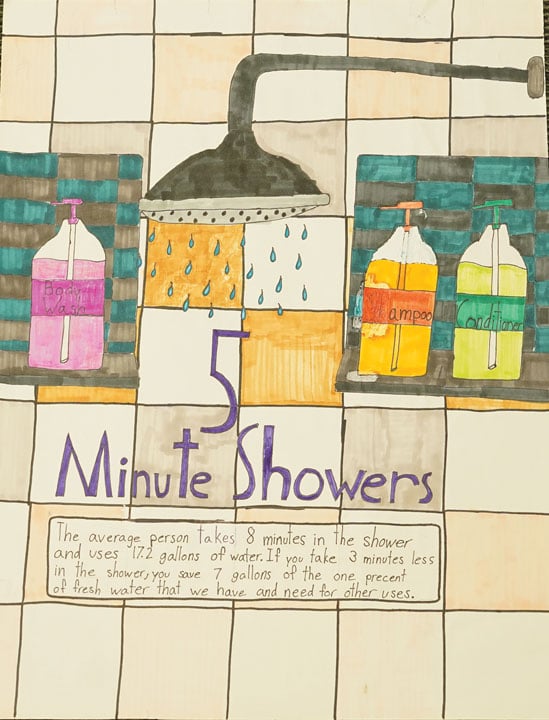 Body
Wash
Shampoo
Conditioner
5
Minute Showers
The average person takes 8 minutes in the shower
and uses 17.2 gallons of water. If you take 3 minutes less
in the shower, you save 7 gallons of the one precent
of fresh water that we have and need for other uses.